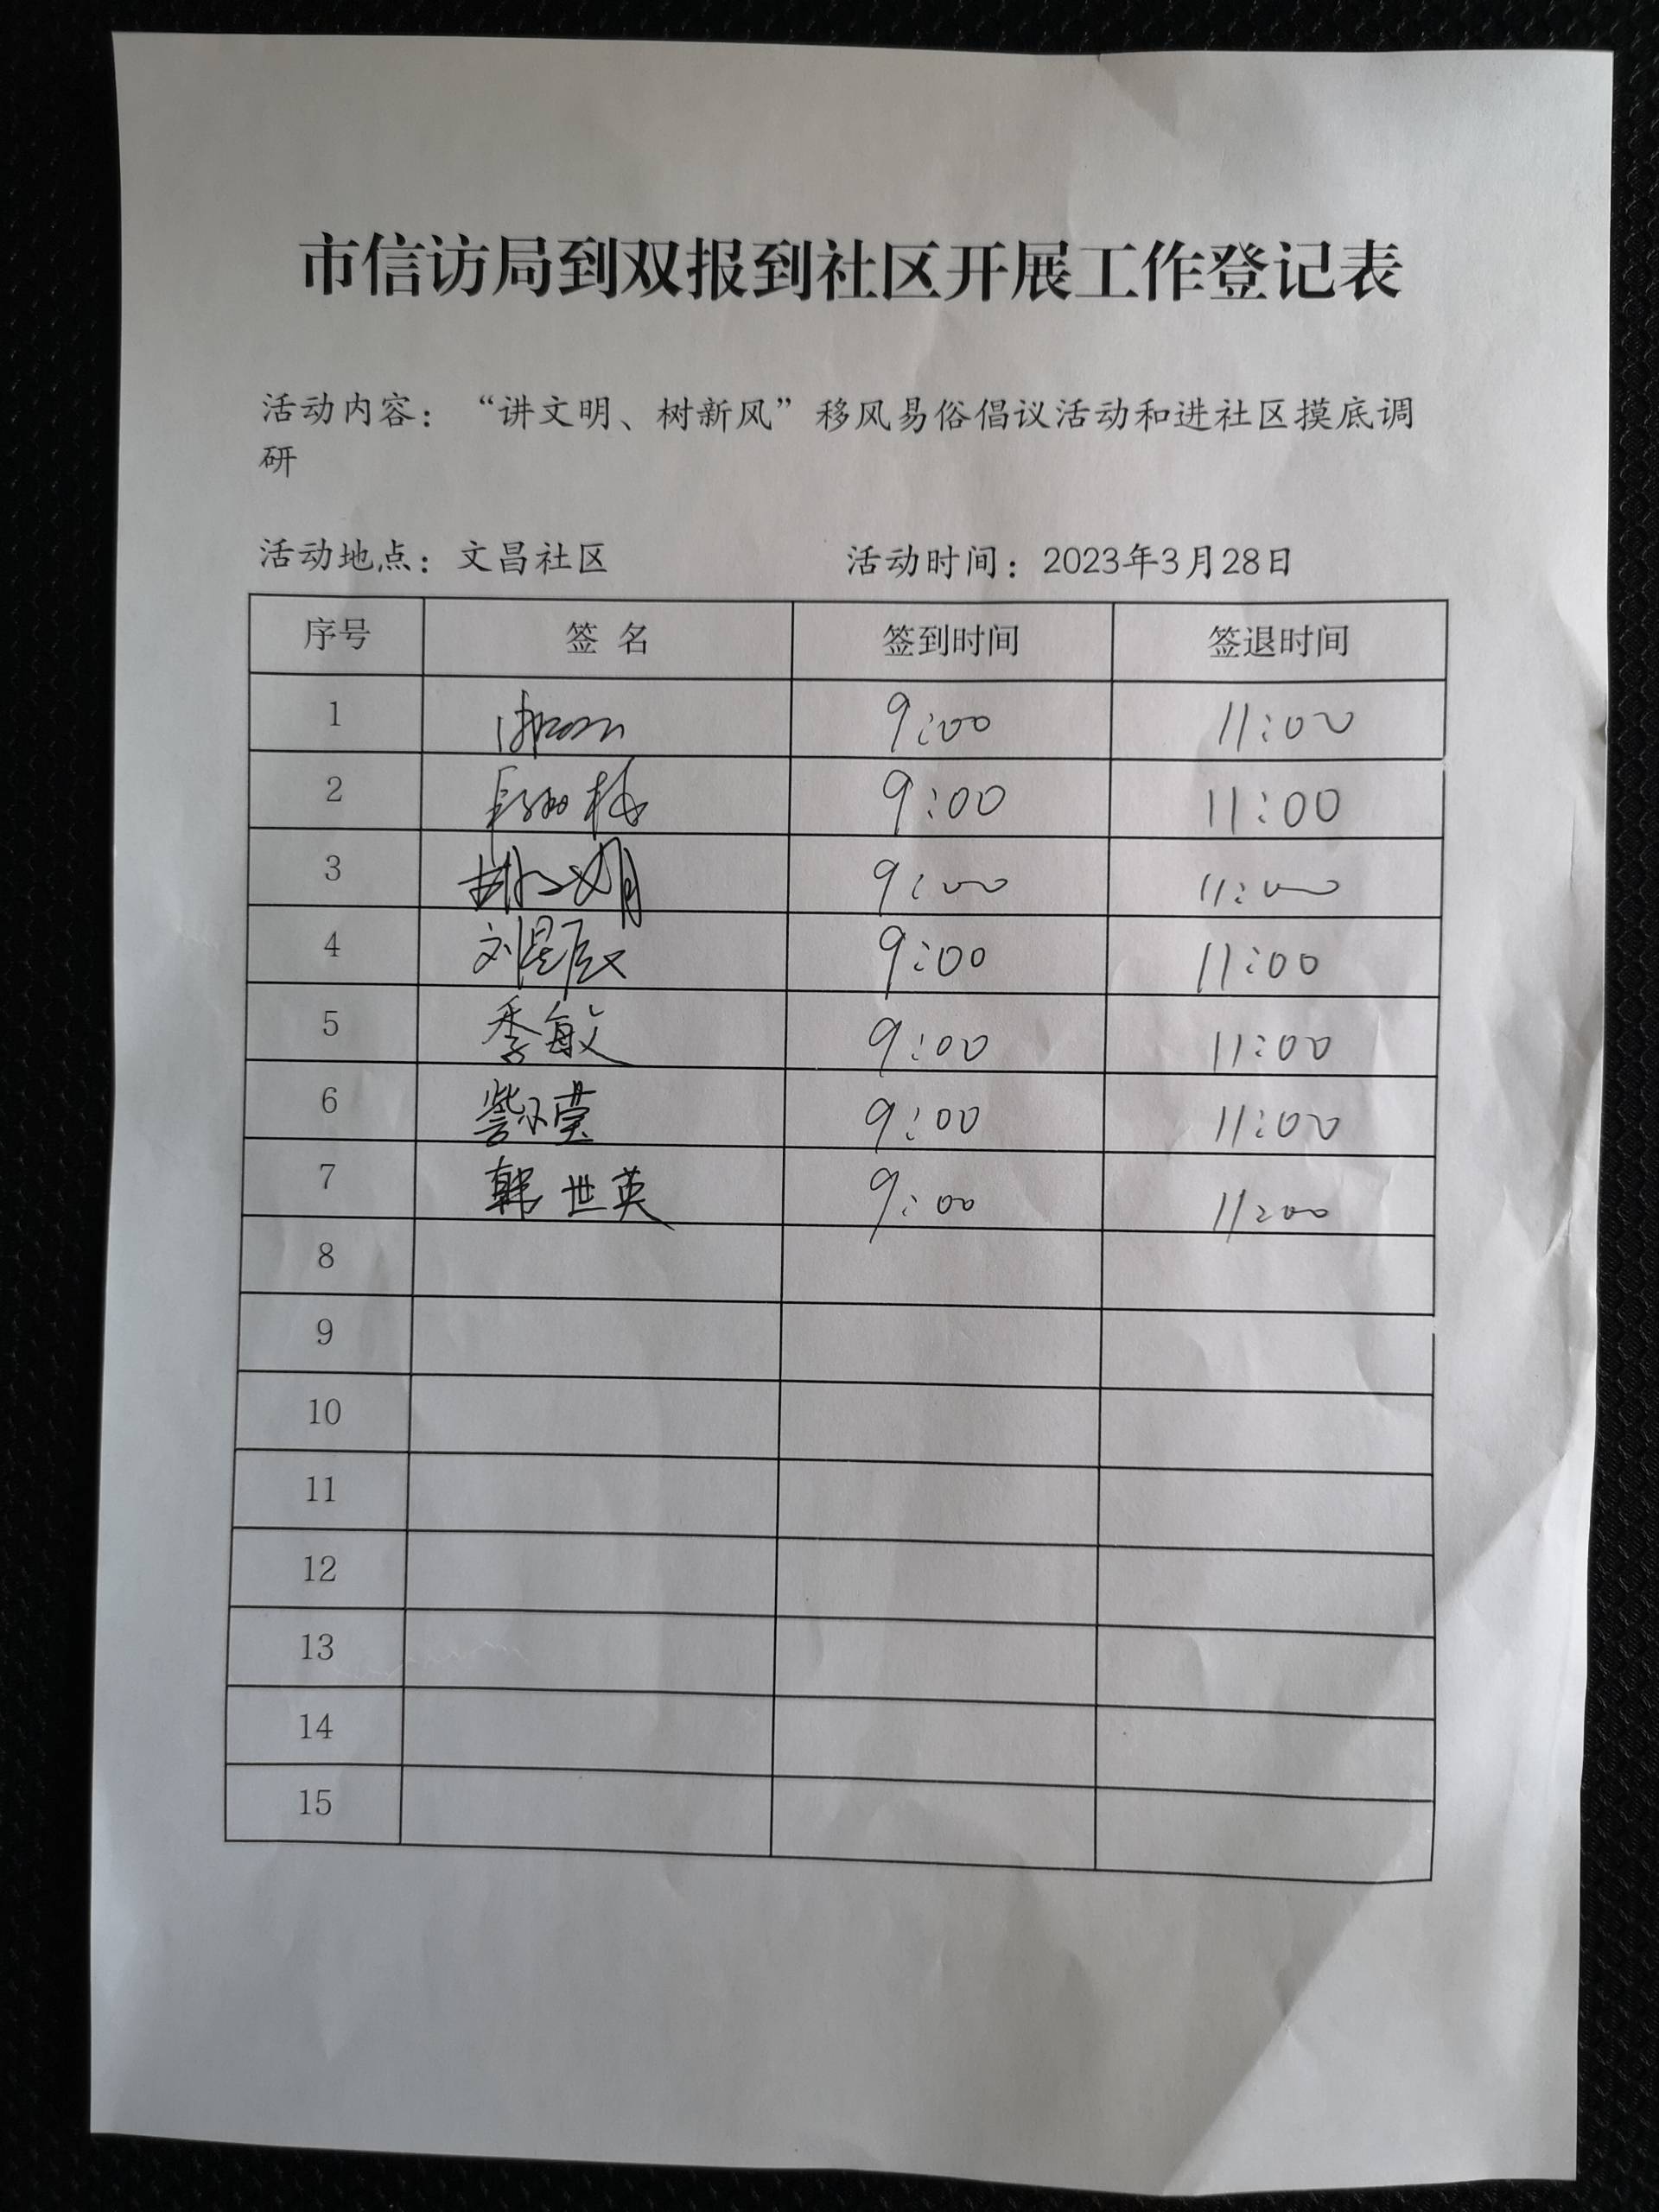 市信访局到双报到社区开展工作登记表
活动内容：“讲文明、树新风”移风易俗倡议活动和进社区摸底调
研
活动地点：文昌社区 活动时间：2023年3月28日
序号 签 名 签到时间 签退时间
1 9:00 11:00
2 9:00 11:00
3 9:00 11:00
4 刘星辰 9:00 11:00
5 季敏 9:00 11:00
6 9:00 11:00
7 韩世英 9:00 11:00
8
9
10
11
12
13
14
15